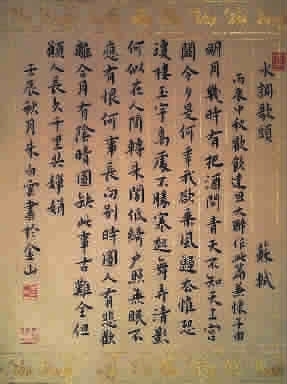 水調歌頭 蘇軾
丙辰中秋歡飲達旦大醉作此篇兼懷子由
明月幾時有把酒問青天不知天上宮
闕今夕是何年我欲乘風歸去惟恐
瓊樓玉宇高處不勝寒起舞弄清影
何似在人間轉朱閣低綺戶照無眠不
應有恨何事長向別時圓人有悲歡
離合月有陰晴圓缺此事古難全但
願人長久千里共嬋娟
壬辰秋月朱雲書於金山